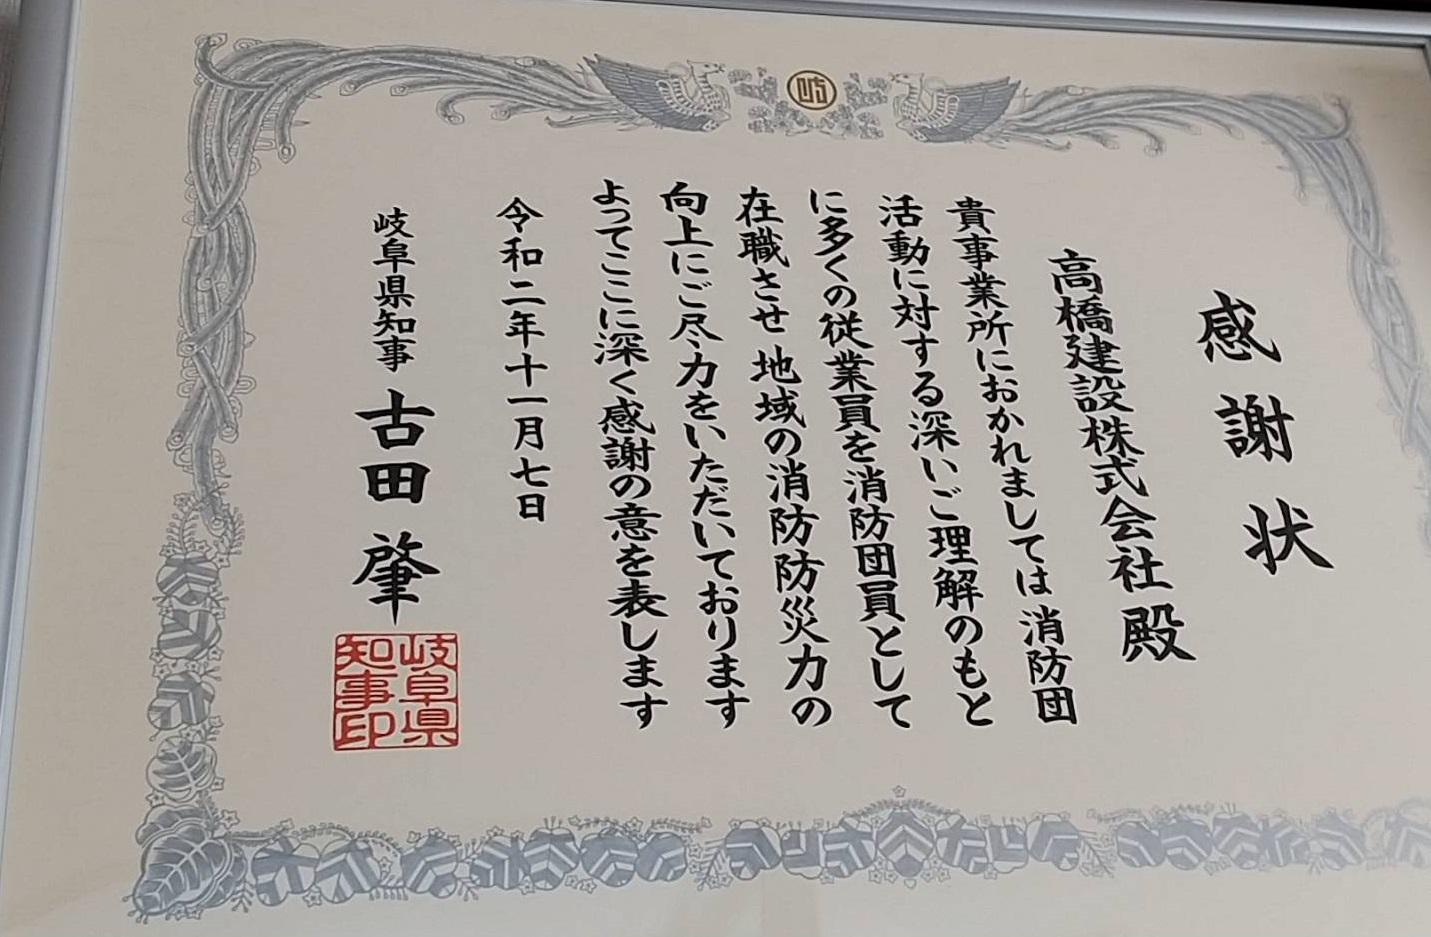 岐
感謝状
高橋建設株式会社殿
貴事業所におかれましては消防団
活動に対する深いご理解のもと
に多くの従業員を消防団員として
在職させ地域の消防防災力の
向上にご尽力をいただいております
よってここに深く感謝の意を表します
令和二年十一月七日
岐阜県知事 古田肇
岐阜県
知事印